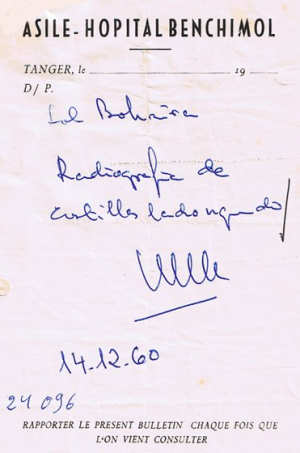 ASILE-HOPITAL BENCHIMOL
TANGER, le 19
D/ P.
Sol Bohnira
Radiografia de
costillas lado izquierdo
14.12.60
24 096
RAPPORTER LE PRESENT BULLETIN CHAQUE FOIS QUE
L'ON VIENT CONSULTER